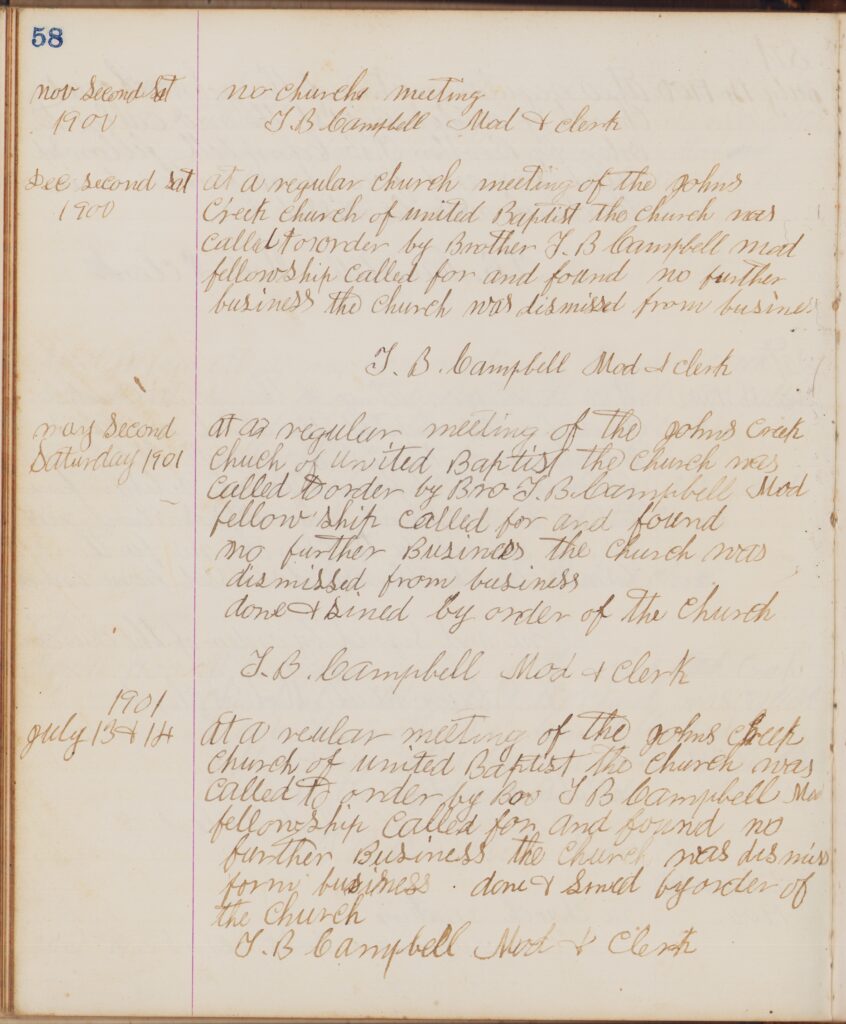 58
nov second Sat
1900
no churchs meeting
T B Campbell Mod & clerk
Dec second Sat
1900
at a regular church meeting of the johns
Creek church of united Baptist the church was
called to order by Brother T B Campbell mod
fellowship called for and found no further
business the church was dismissed from business
T. B. Campbell Mod & clerk
may second
Saturday 1901
at a regular meeting of the johns Creek
Chuch of united Baptist the church was
called to order by Bro T. B. Campbell Mod
fellow ship called for and found
no further Business the church was
dismissed from business
done & sined by order of the church
T. B. Campbell Mod & Clerk
1901
july 13 & 14
at a reular meeting of the johns creek
church of united Baptist the church was
called to order by T B Campbell Mod
fellowship called for and found no
further Business the church was dismiss
form business. done & sined by order of
the church
T. B Campbell Mod & Clerk